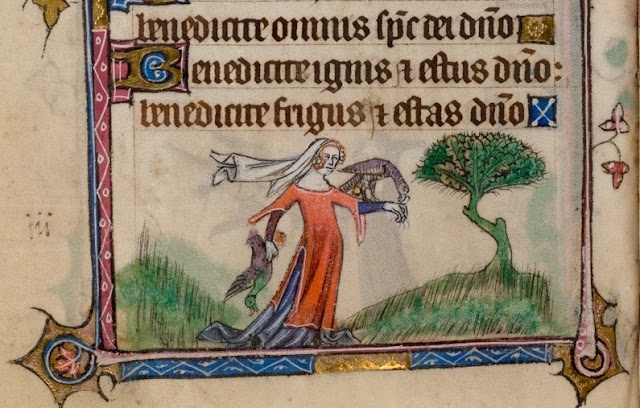 benedicite omnis sp̄c dei dn̄o
Benedicite ignis ⁊ estus dn̄o:
benedicite frigus ⁊ estas dn̄o